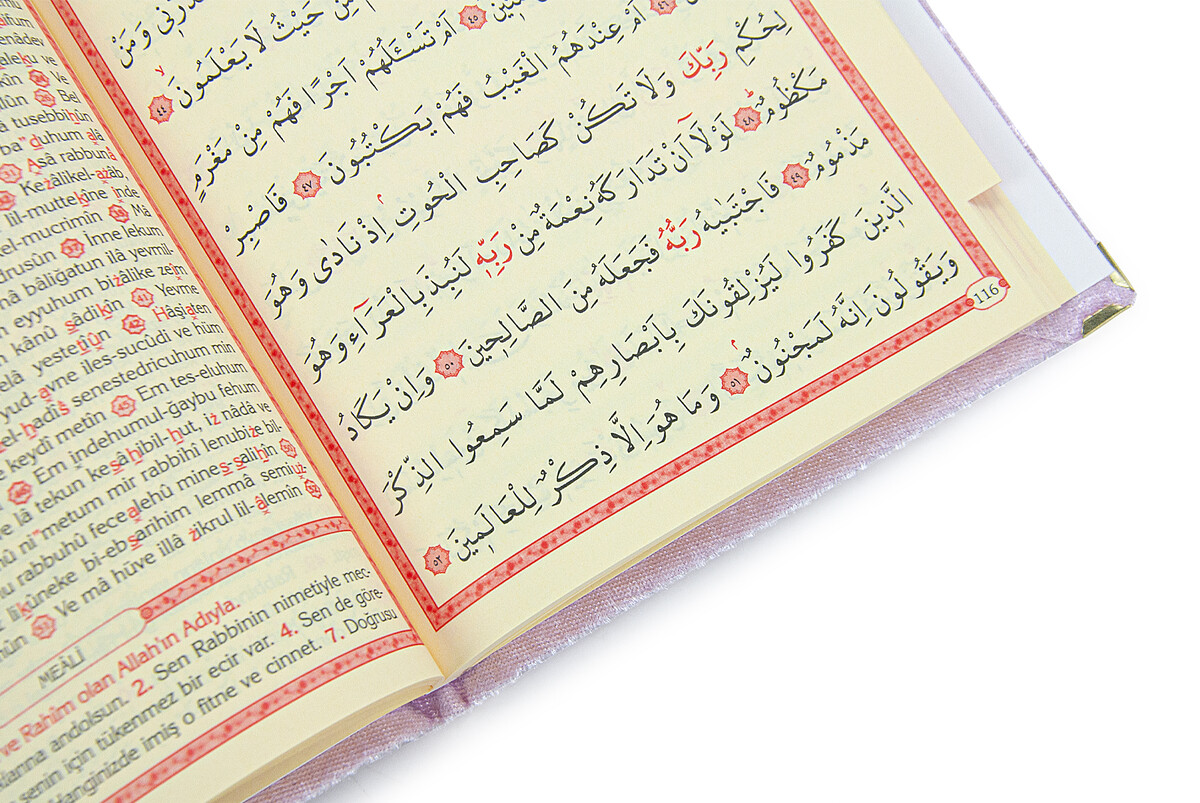 مِنْ حَيْثُ لَا يَعْلَمُونَ ٤٤
اَمْ تَسْـَٔلُهُمْ اَجْرًا فَهُمْ مِنْ مَغْرَمٍ
اَمْ عِنْدَهُمُ الْغَيْبُ فَهُمْ يَكْتُبُونَ ٤٧ فَاصْبِرْ
لِحُكْمِ رَبِّكَ وَلَا تَكُنْ كَصَاحِبِ الْحُوتِ اِذْ نَادٰى وَهُوَ
مَكْظُومٌ ٤٨ لَوْلَٓا اَنْ تَدَارَكَهُ نِعْمَةٌ مِنْ رَبِّه۪ لَنُبِذَ بِالْعَرَٓاءِ وَهُوَ
مَذْمُومٌ ٤٩ فَاجْتَبٰيهُ رَبُّهُ فَجَعَلَهُ مِنَ الصَّالِح۪ينَ ٥٠ وَاِنْ يَكَادُ
الَّذ۪ينَ كَفَرُوا لَيُزْلِقُونَكَ بِاَبْصَارِهِمْ لَمَّا سَمِعُوا الذِّكْرَ
وَيَقُولُونَ اِنَّهُ لَمَجْنُونٌ ٥١ وَمَا هُوَ اِلَّا ذِكْرٌ لِلْعَالَم۪ينَ ٥٢
116
Bel
tusebbihûn
duhum alâ
Aşâ rabbunâ
Kezâlikel-azâb,
lil-muttekîne inde
el-mucrimîn Mâ
İnne lekum
bâliğatun ilâ yevmil-
eyyuhum bizâlike zeîm
kânû sâdikîn 41 Yevme
yestetîûn 42 Hâşiaten
yud-avne iles-sucûdi ve hüm
senestedricuhum min
keydî metîn 45 Em tes-eluhum
46 Em indehumul-ğaybu fehum
lâ tekun kesâhibil-hut, iz nâdâ ve
ni"metum mir rabbihî lenubize bil-
rabbuhû fecealehû mines-salihîn 50
bi-ebsarihim lemmâ semiuz-
Ve mâ hüve illâ zikrul lil-âlemîn 52
MEÂLİ
ve Rahîm olan Allah'ın Adıyla.
andolsun. 2. Sen Rabbinin nimetiyle mec-
senin için tükenmez bir ecir var. 4. Sen de göre-
Hanginizde imiş o fitne ve cinnet. 7. Doğrusu